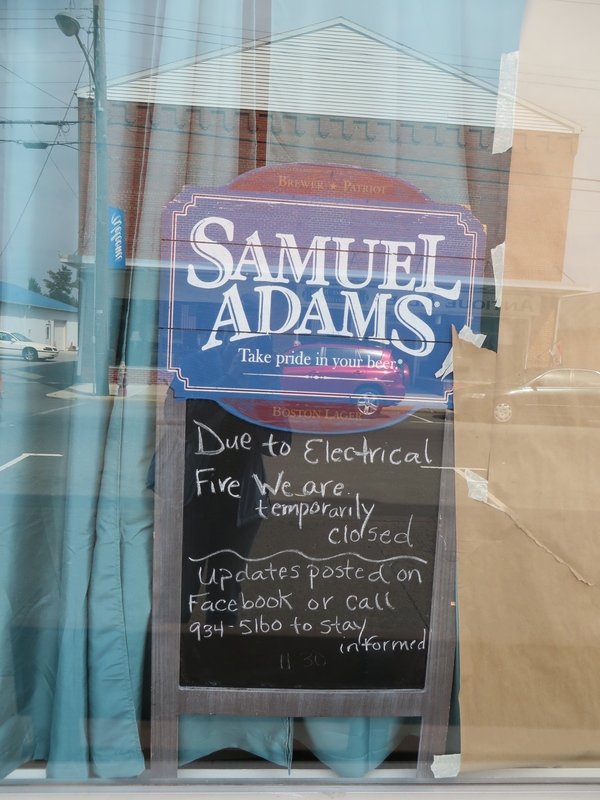 BREWER ★ PATRIOT
SAMUEL
ADAMS®
Take pride in your beer.®
BOSTON LAGER®
Due to Electrical
Fire We are
temporarily
closed
Updates posted on
Facebook or call
934-5160 to stay
informed
11 30
Welcome
ANTIQUE